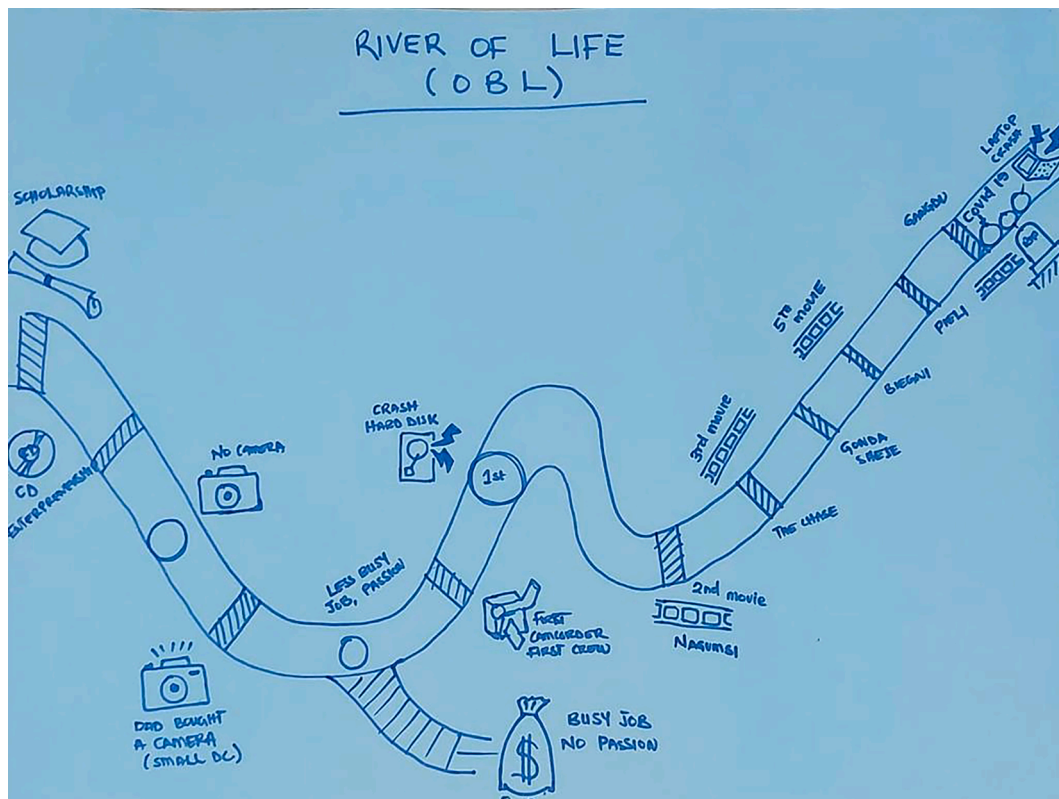 RIVER OF LIFE
(OBL)
SCHOLARSHIP
CD
ENTERPRENEURSHIP
NO CAMERA
DAD BOUGHT
A CAMERA
(SMALL DC)
LESS BUSY
JOB, PASSION
CRASH
HARD DISK
1st
FIRST
CAMCORDER
FIRST CREW
$
BUSY JOB
NO PASSION
2nd movie
NAGUMSI
3rd movie
THE CHASE
GONDA
SHEJE
5TH
MOVIE
BIEGNI
PIELI
GANGDU
COVID 19
LAPTOP
CRASH